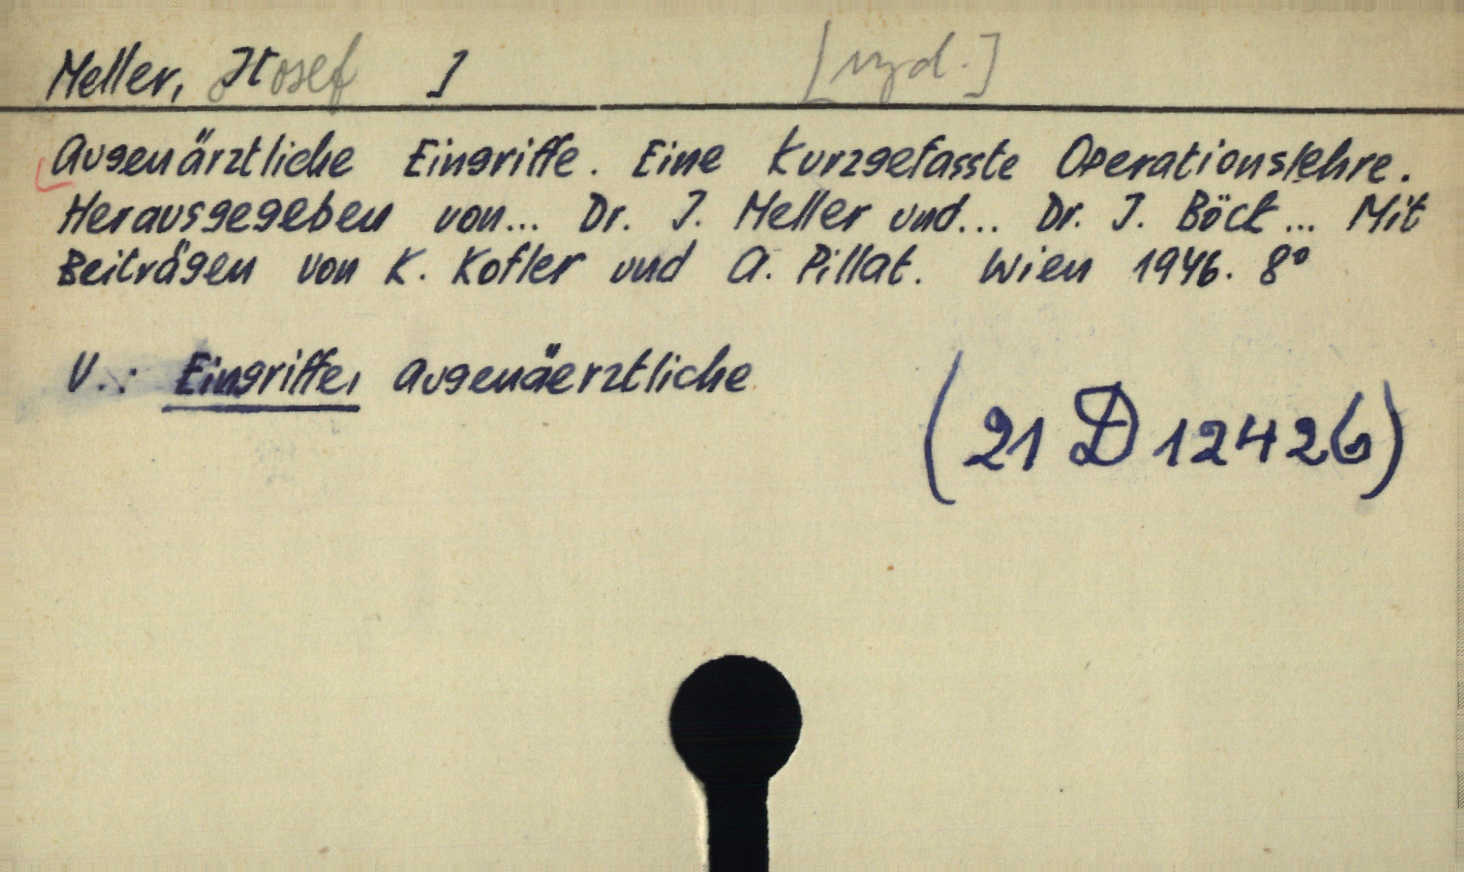 Meller, Josef ] [wyd.]
Augenärztliche Eingriffe. Eine kurzgefasste Operationslehre.
Herausgegeben von... Dr. J. Meller und... Dr. J. Böck... Mit
Beiträgen von K. Kofler und A. Pillat. Wien 1946. 8°
V.: Eingriffe, augenäerztliche
(21 D 12426)